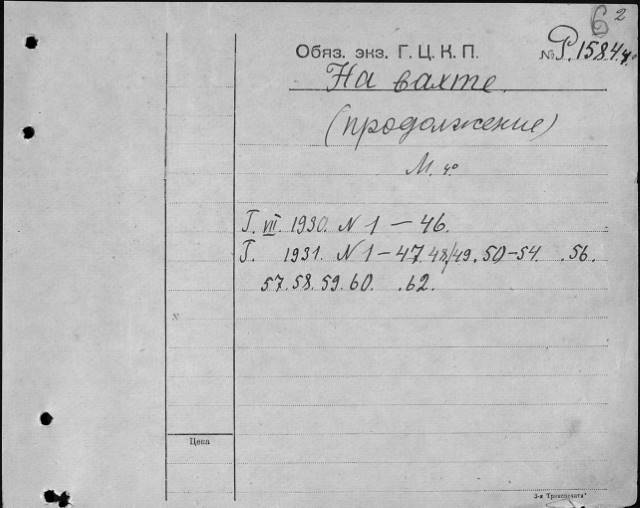 6 2
Обяз. экз. Г. Ц. К. П. № Р.1584 4°
На вахте.
(продолжение)
М. 4°
Г. VII. 1930. N 1 — 46.
Г. 1931. N 1 — 47. 48/49. 50-54. .56.
57. 58. 59. 60. .62.
Цена
3-я Трансп